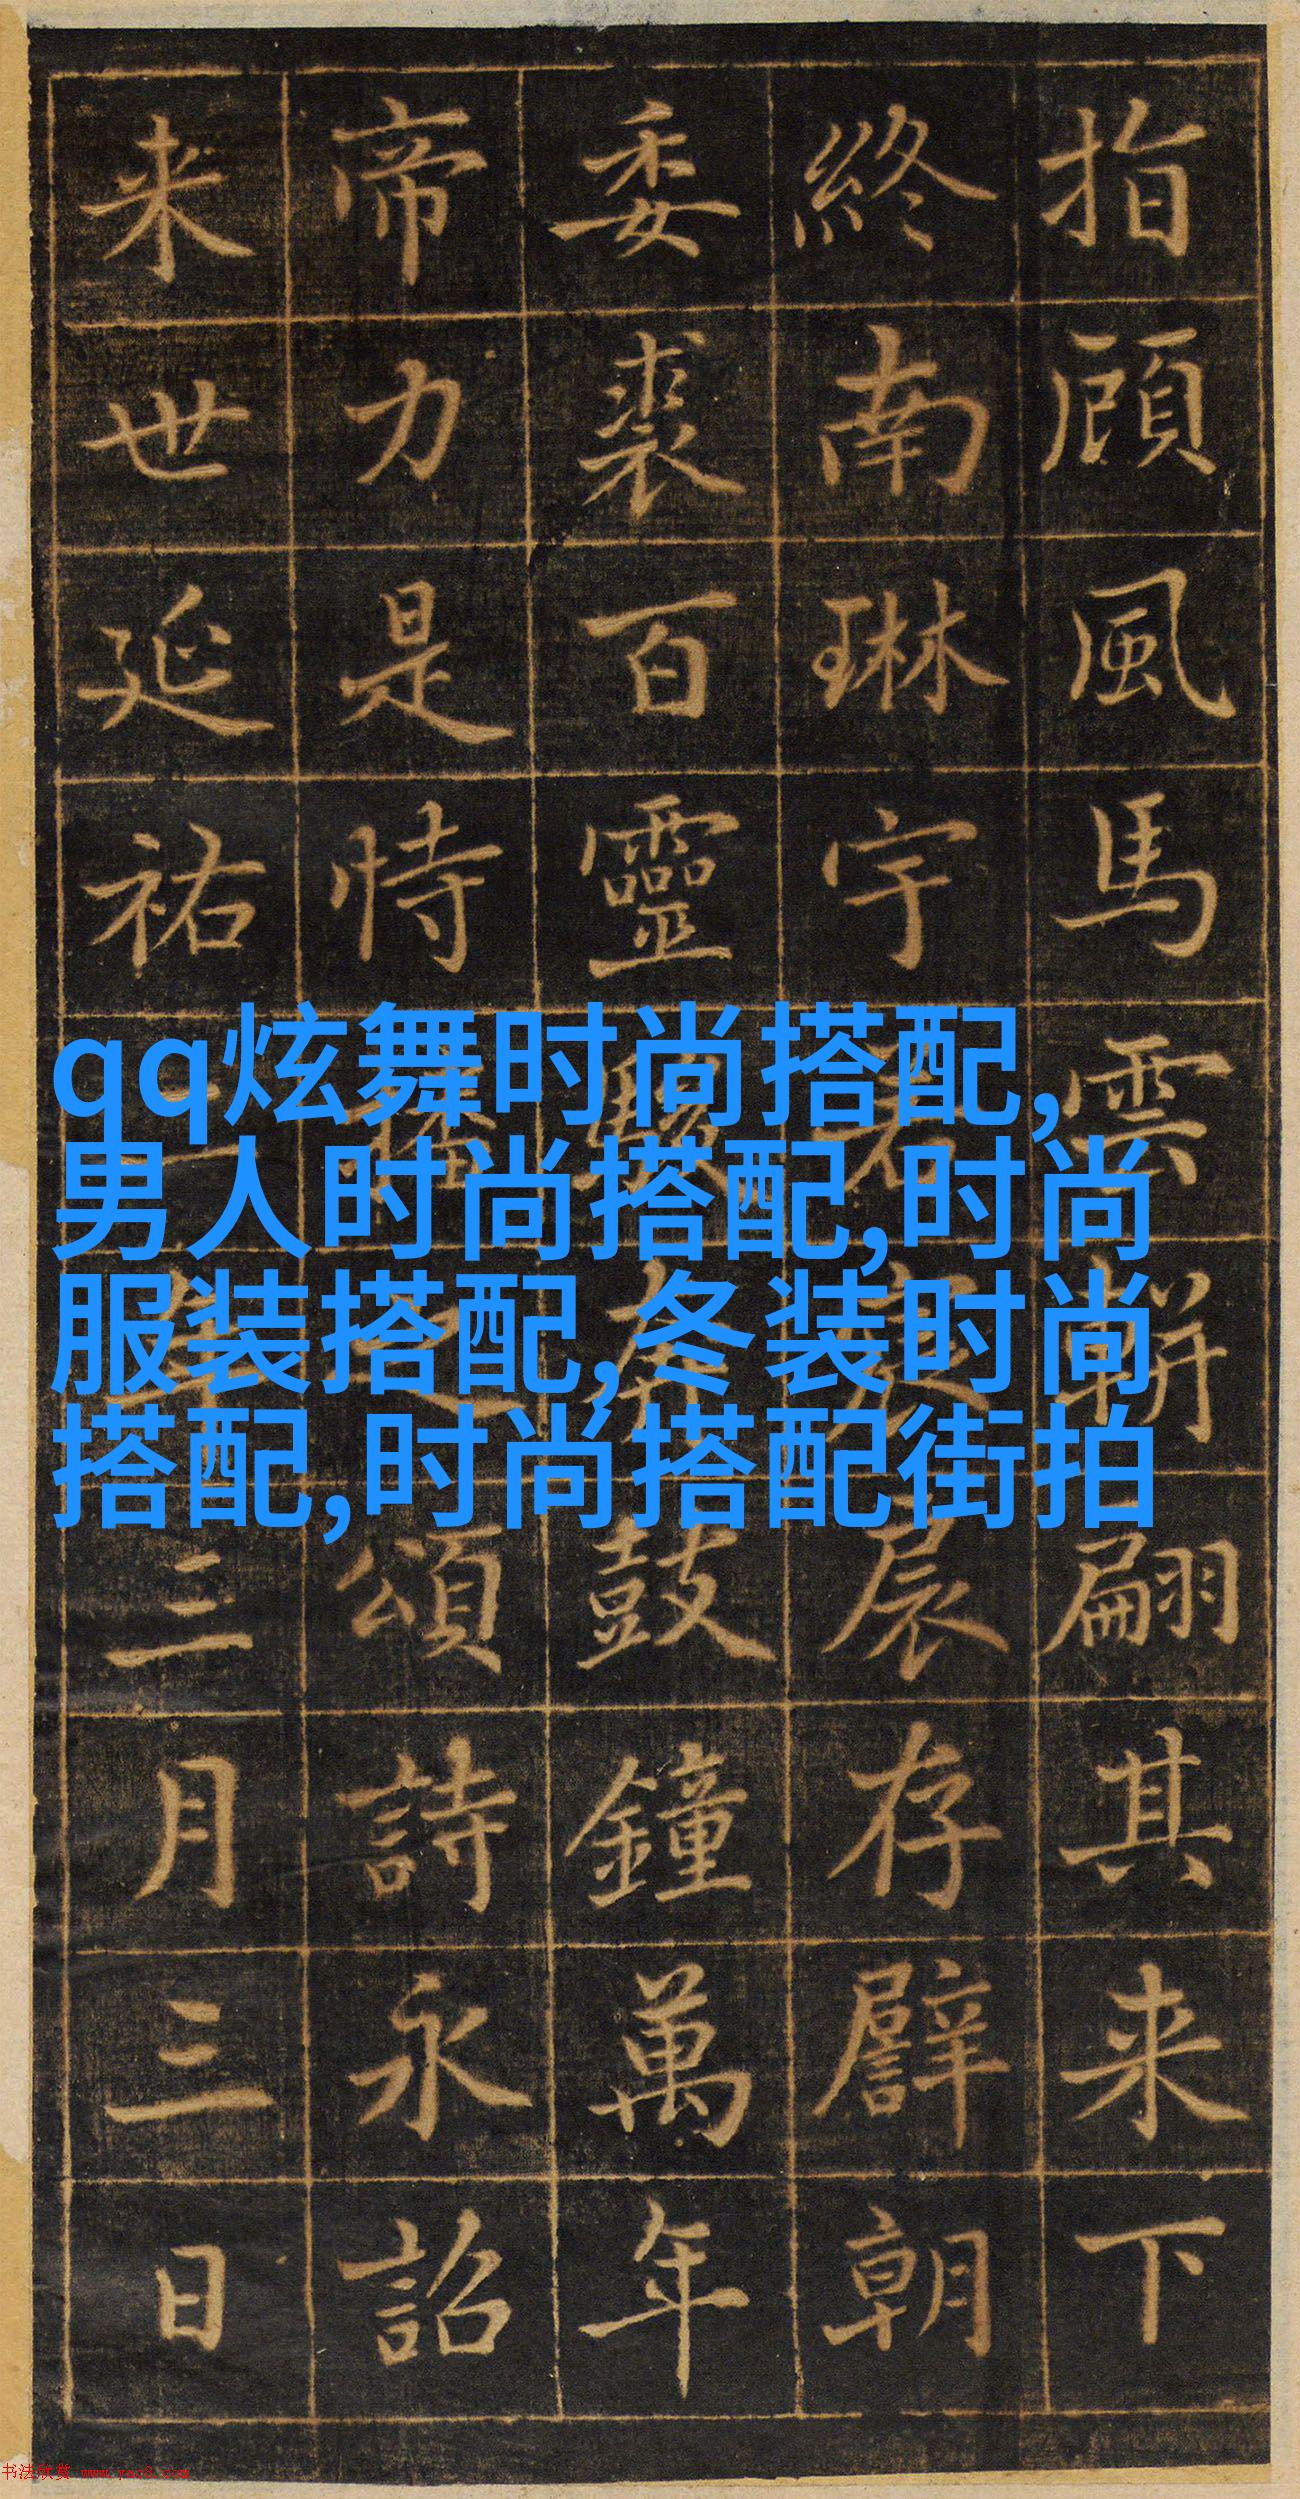 指顧風馬雲軿翩其来下
終南琳宇若存譬朝
委裘百靈鼓鐘萬年
帝力是恃播之頌詩永詔
来世延祐年三月三日
qq炫舞时尚搭配,
男人时尚搭配,时尚
服装搭配,冬装时尚
搭配,时尚搭配街拍
书法欣赏 www.yac8.com